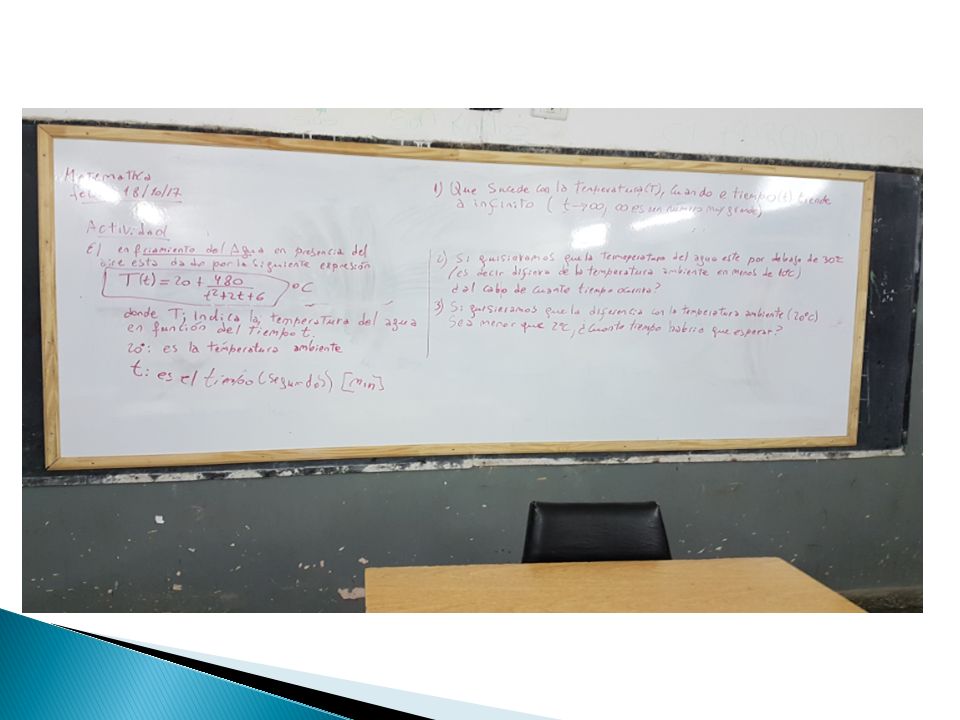 Matematica
fecha 18/10/17
Actividad
El enfriamiento del Agua en presencia del
aire esta dado por la siguiente expresión
T(t) = 20 + 480 / t²+2t+6 °C
donde T; indica la temperatura del agua
en función del tiempo t.
20°: es la temperatura ambiente
t: es el tiempo (segundos) [min]
1) Que sucede con la temperatura (T), cuando e tiempo (t) tiende
a infinito ( t→∞, ∞ es un numero muy grande)
2) Si quisieramos que la temaperatura del agua esté por debajo de 30°C
(es decir difiera de la temperatura ambiente en menos de 10°C)
¿al cabo de cuanto tiempo ocurrira?
3) Si quisieramos que la diferencia con la temperatura ambiente (20°C)
sea menor que 2°C, ¿cuanto tiempo habria que esperar?